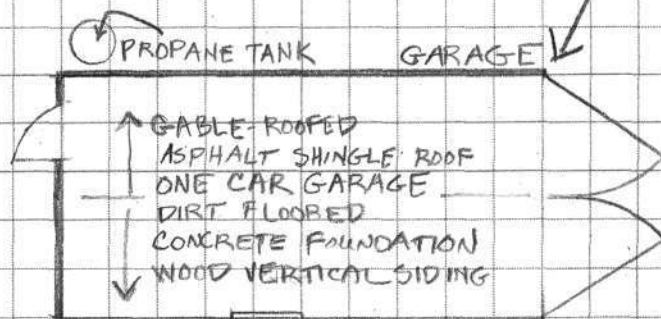 PROPANE TANK GARAGE
GABLE-ROOFED
ASPHALT SHINGLE ROOF
ONE CAR GARAGE
DIRT FLOORED
CONCRETE FOUNDATION
WOOD VERTICAL SIDING